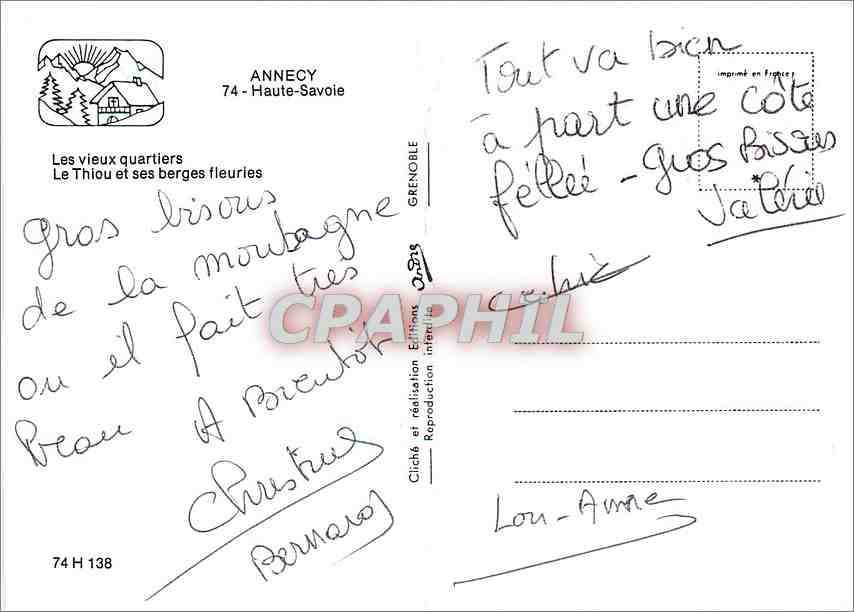 ANNECY
74 - Haute-Savoie
Les vieux quartiers
Le Thiou et ses berges fleuries
Gros bisous
de la montagne
ou il fait très
beau A Bientôt
Christine
Bernard
74 H 138
Cliché et réalisation Editions André GRENOBLE
Reproduction interdite
imprimé en France
Tout va bien
à part une côte
féllée - Gros Bisous
Valérie
Lou-Anne
CPAPHIL